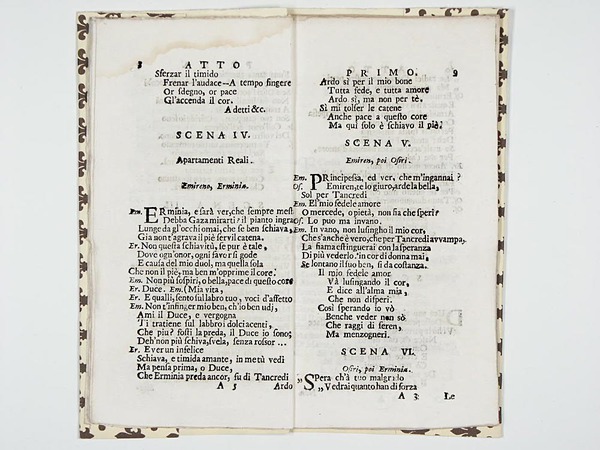 8 ATTO
Sferzar il timido
Frenar l'audace—A tempo fingere
Or sdegno, or pace
Gl'accenda il cor.
A detti &c.
SCENA IV.
Apartamenti Reali.
Emireno, Erminia.
Em. ERminia, e sarà ver, che sempre mest
Debba Gaza mirarti? il pianto ingra
Lunge da gl'occhi omai, che se ben schiava,
Gia non t'agrava il piè servil catena.
Er. Non questa schiavitù, se pur è tale,
Dove ogn'onor, ogni favor si gode
E causa del mio duol, ma quella sola
Che non il piè, ma ben m'opprime il core.
Em. Non più sospiri, o bella, pace di questo core
Er. Duce. Em. (Mia vita,
Er. E qualli, sento sul labro tuo, voci d'affetto
Em. Non t'infinger mio ben, ch'lo ben udj,
Ami il Duce, e vergogna
Ti tratiene sul labbro i dolci acenti,
Che piu? fosti la preda, il Duce io sono;
Deh'non più schiva, svela, senza rossor ...
Er. E ver un infelice
Schiava, e timida amante, in metù vedi
Ma pensa prima, o Duce,
Che Erminia preda ancor, fu di Tancredi
A 5 Ardo
PRIMO. 9
Ardo sì per il mio bone
Tutta fede, e tutta amore
Ardo sì, ma non per tè.
Si mi tolser le catene
Anche pace a questo core
Ma qui solo è schiavo il piè.
SCENA V.
Emiren, poi Osiri.
Em. PRincipessa, ed ver, che m'ingannai?
Os. Emiren, te lo giuro, arde la bella,
Sol per Tancredi
Em. El'mio fedele amore
O mercede, o pietà, non sia che speri?
Os. Lo puo ma invano.
Em. In vano, non lusingho il mio cor,
Che s'anche è vero, che per Tancredi avvampa,
La fiama estinguerai con la speranza
Di più vederlo. 'in cor di donna mai,
Se lontano il suo ben, si da costanza.
Il mio fedele amor
Và lusingando il cor,
E dice all'alma mia,
Che non disperi.
Così sperando io vò
Benche veder non sò
Che raggi di seren,
Ma menzogneri.
SCENA VI.
Osiri, poi Erminia.
„SPera ch'à tuo malgrado
„Vedrai quanto han di forza
A 3 Le